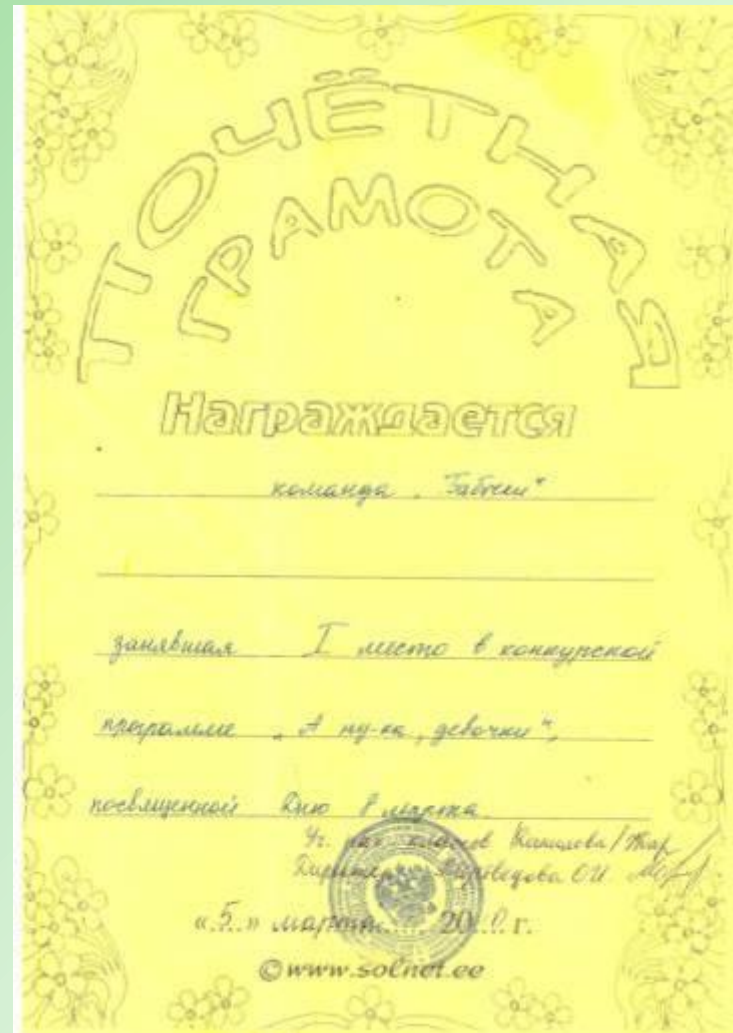 ПОЧЁТНАЯ
ГРАМОТА
Награждается
команда „Бабочки“
занявшая I место в конкурсной
программе „А ну-ка, девочки“,
посвященной Дню 8 марта.
Уч. нач. классов
Директор ОИ
«5» марта 20 0 г.
©www.solnet.ee